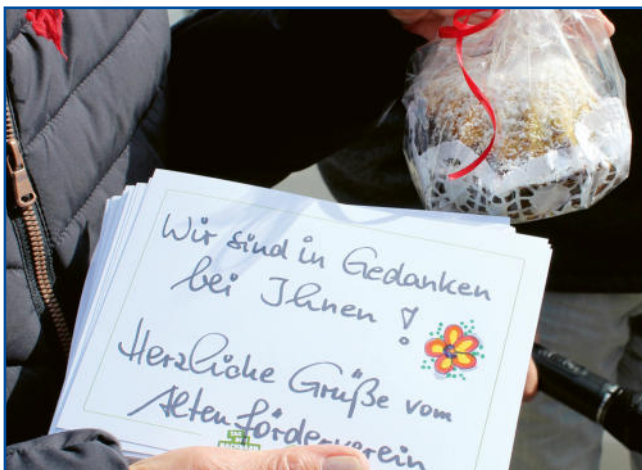 Wir sind in Gedanken
bei Ihnen !
Herzliche Grüße vom
Altenförderverein